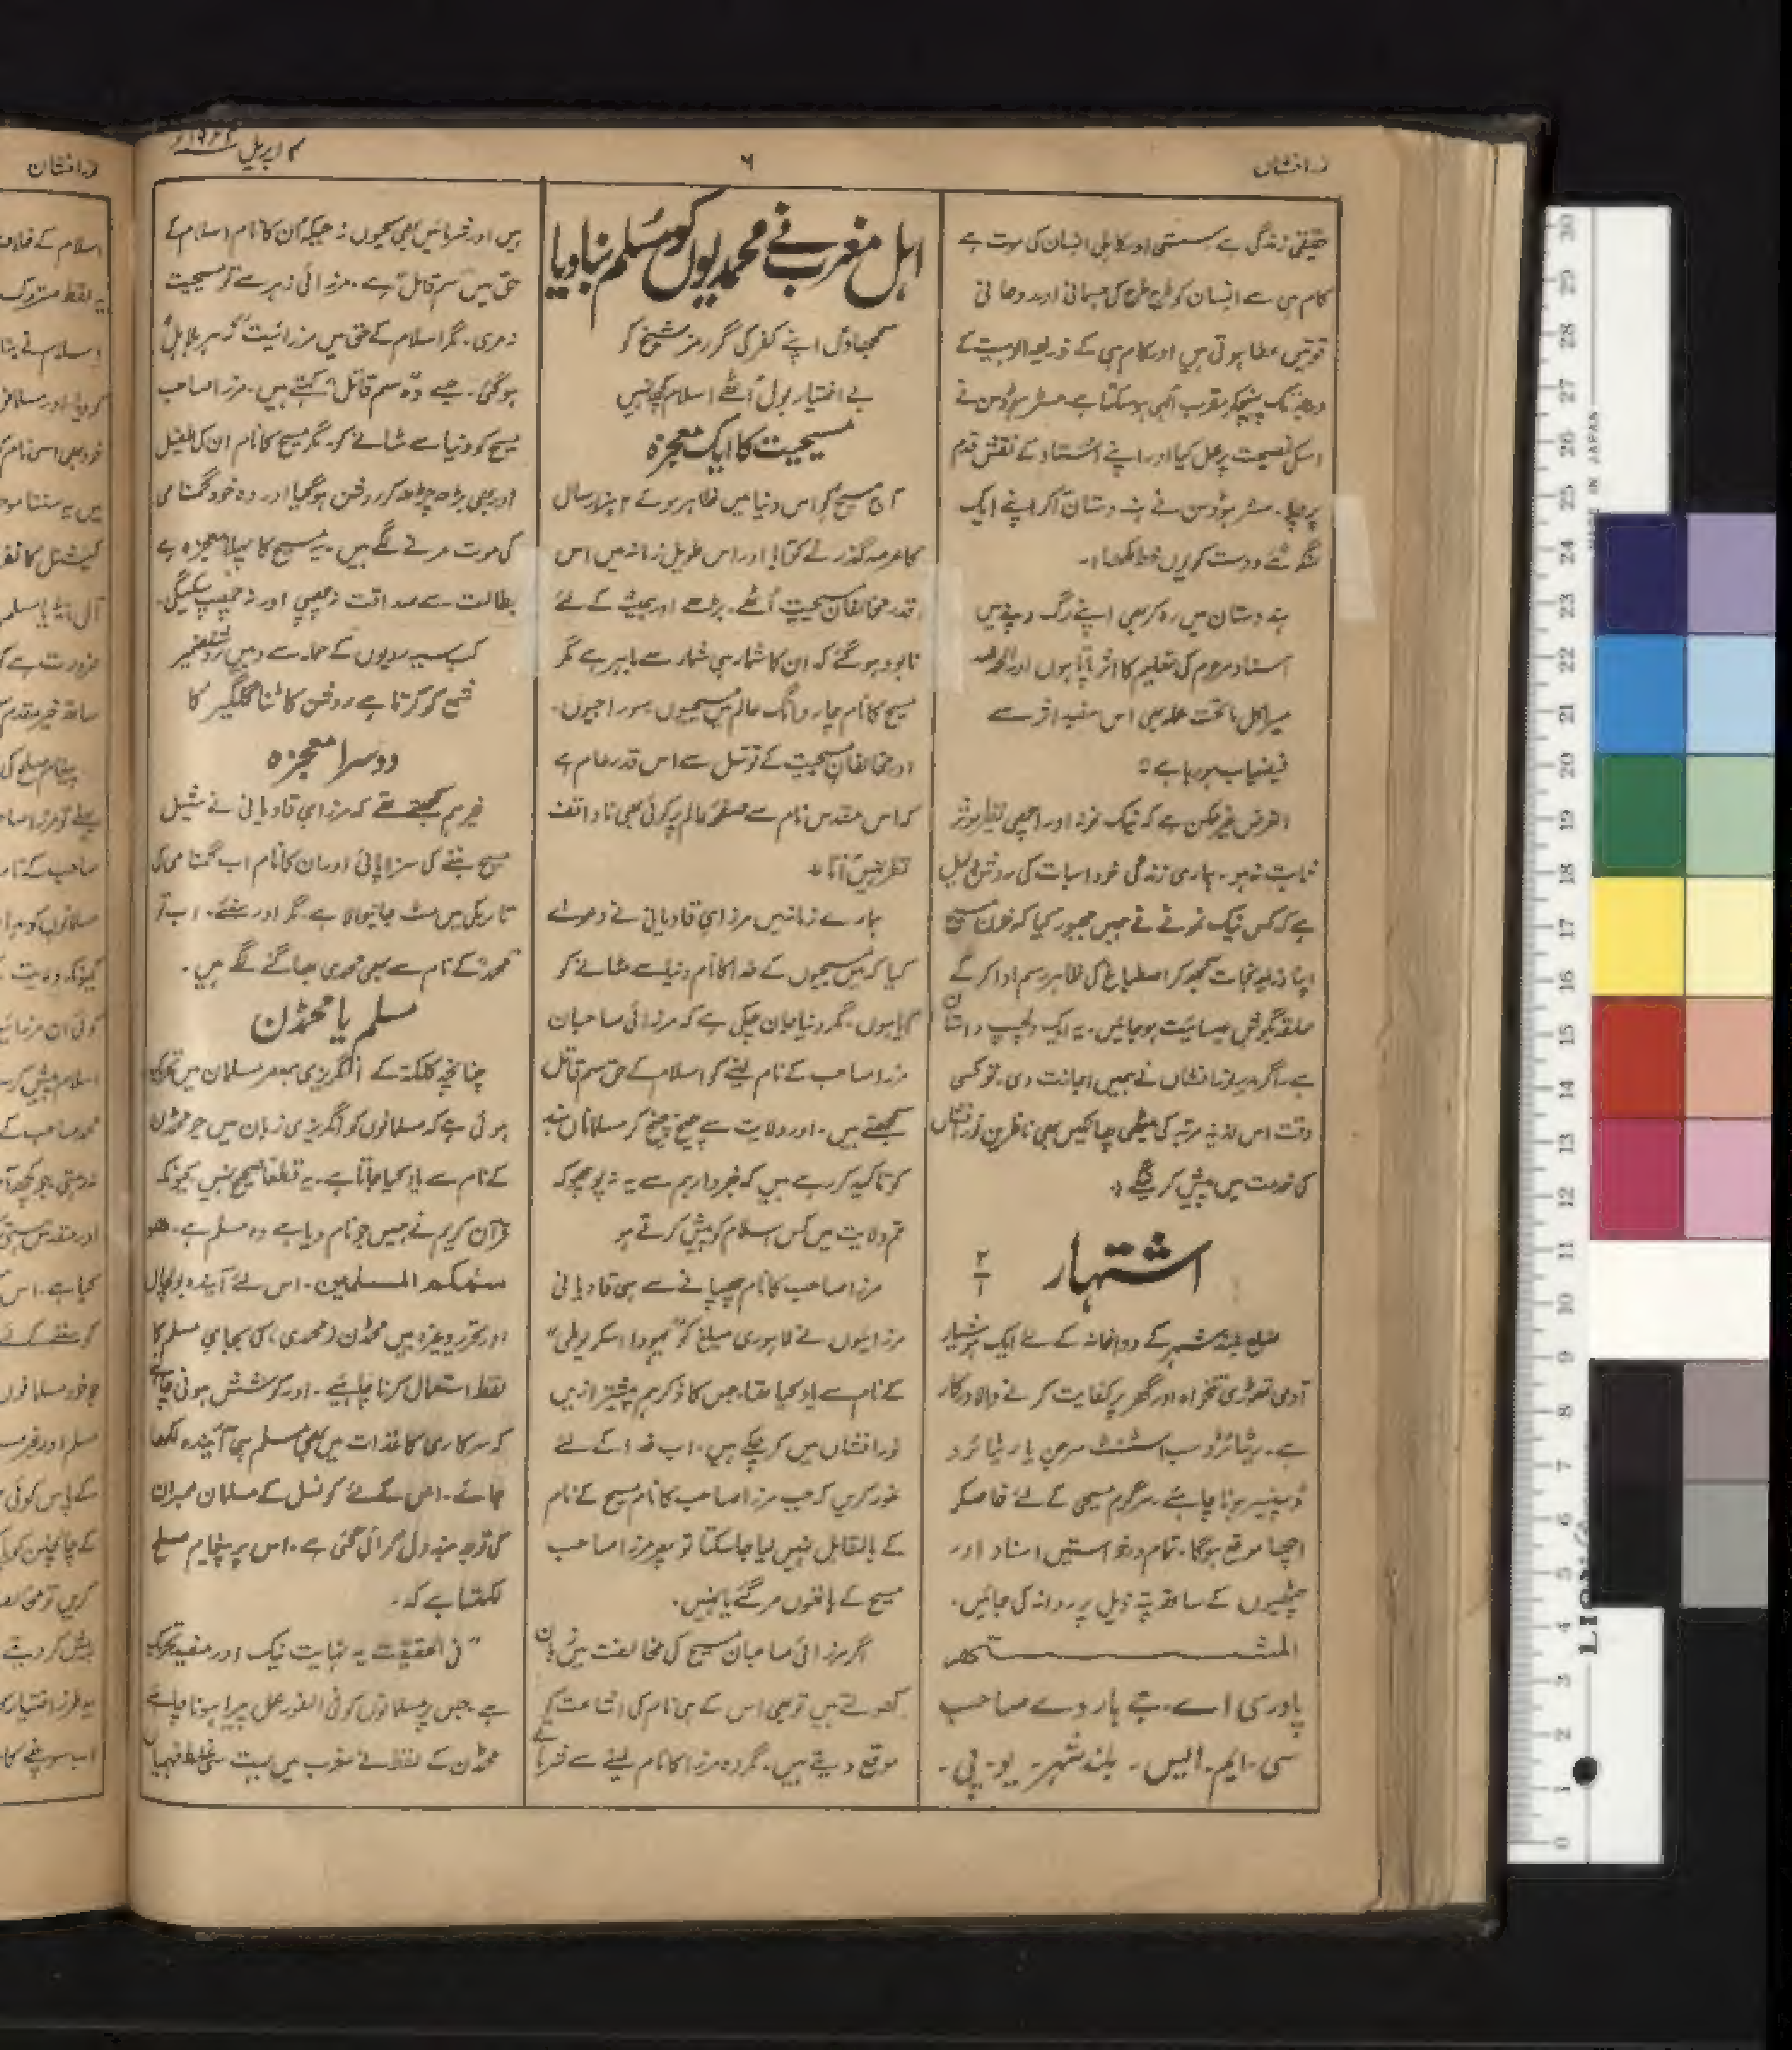 نور افشاں
۶
۴ اپریل
حقیقی زندگی ہے سستی اور کاہلی انسان کی موت ہے
کام ہی سے انسان کو طرح طرح کی جسمانی اور روحانی
قوتیں عطا ہوتی ہیں اور کام ہی کے ذریعہ الوہیت کے
درجہ تک پہنچکر مقرب الٰہی ہو سکتا ہے۔ مسٹر ہوڈسن نے
اسکی نصیحت پر عمل کیا اور اپنے اُستاد کے نقش قدم
پر چلا۔ مسٹر ہوڈسن نے ہندوستان آکر اپنے ایک
دوست کو یوں خط لکھا:۔
ہندوستان میں رہ کر بھی اپنے رگ و پے میں
استاد مرحوم کی تعلیم کا اثر پاتا ہوں اور الحمد للہ
میرا کل ماتحت عملہ بھی اس مفید اثر سے
فیضیاب ہو رہا ہے ؛
الغرض غیر ممکن ہے کہ نیک نمونہ اور اچھی نظیر مؤثر
ثابت نہ ہو۔ ہماری زندگی خود اسبات کی روشن دلیل
ہے کہ کس نیک نمونے نے ہمیں مجبور کیا کہ خون مسیح
اپنا ذریعہ نجات سمجھ کر اصطباغ کی ظاہر رسم ادا کر کے
حلقہ بگوش عیسائیت ہو جائیں۔ یہ ایک دلچسپ داستان
ہے۔ اگر مدیر نور افشاں نے ہمیں اجازت دی۔ تو کسی
وقت اس لذیذ مرتبہ کی میٹھی پھانکیں بھی ناظرین نور افشاں
کی خدمت میں پیش کرینگے ؛
اشتہار
۲
۱
ضلع بلند شہر کے دواخانہ کے لئے ایک ہوشیار
آدمی تھوڑی تنخواہ اور گھر پر کفایت کرنے والا درکار
ہے۔ ریٹائرڈ سب اسسٹنٹ سرجن یا ریٹائرڈ
کمپنسر ہونا چاہئے۔ سرگرم مسیحی کے لئے خاصکر
اچھا موقع ہوگا۔ تمام درخواستیں اسناد اور
چٹھیوں کے ساتھ پتہ ذیل پر روانہ کی جائیں۔
المشتہر
پادری اے۔ جے ہاروے صاحب
سی۔ ایم۔ ایس۔ بلند شہر۔ یو۔ پی۔
اہل مغرب نے محمدیوں کو مُسلم بنا دیا
سمجھاؤں اپنے کفر کی گر رمز شیخ کو
بے اختیار بول اُٹھے اسلام کچھ نہیں
مسیحیت کا ایک معجزہ
آج مسیح کو اس دنیا میں ظاہر ہوئے ۲ ہزار سال
کا عرصہ گذرنے کو آیا اور اس طویل زمانہ میں اس
قدر مخالفان مسیحیت اُٹھے۔ بڑھے اور ہمیشہ کے لئے
نابود ہو گئے کہ ان کا شمار ہی شمار سے باہر ہے مگر
مسیح کا نام چار دانگ عالم میں مسیحیوں
اور مخالفان مسیحیت کے توسل سے اس قدر عام ہے
کہ اس مقدس نام سے صفحۂ عالم پر کوئی بھی ناواقف
نظر نہیں آتا ؛
ہمارے زمانہ میں مرزا جی قادیانی نے دعوے
کیا کہ میں مسیحیوں کے خدا کا نام دنیا سے مٹانے کو
آیا ہوں۔ مگر دنیا جان چکی ہے کہ مرزائی صاحبان
مرزا صاحب کے نام لینے کو اسلام کے حق سم قاتل
سمجھتے ہیں۔ اور ولایت سے چیخ چیخ کر مسلمانان ہند
کو تاکید کر رہے ہیں کہ خبردار ہم سے یہ نہ پوچھو کہ
تم ولایت میں کس اسلام کو پیش کرتے ہو
مرزا صاحب کا نام چھپانے سے ہی قادیانی
مرزائیوں نے لاہوری مبلغ کو "یہودا اسکریوطی"
کے نام سے یاد کیا تھا۔ جس کا ذکر ہم پیشتر ازیں
نور افشاں میں کر چکے ہیں۔ اب خدا کے لئے
غور کریں کہ جب مرزا صاحب کا نام مسیح کے نام
کے بالمقابل نہیں لیا جا سکتا تو پھر مرزا صاحب
مسیح کے ہاتھوں مر گئے یا نہیں۔
اگر مرزائی صاحبان مسیح کی مخالفت میں زبان
کھولتے ہیں تو بھی اس کے ہی نام کی اشاعت کو
موقع دیتے ہیں۔ مگر وہ مرزا کا نام لینے سے شرماتے
ہیں اور شرمائیں بھی کیوں نہ جبکہ اُن کا نام اسلام کے
حق میں سم قاتل ہے۔ مرزائی زہر سے تو مسیحیت
نہ مری۔ مگر اسلام کے حق میں مرزائیت زہر ہلاہل
ہو گئی۔ جسے وہ سم قاتل کہتے ہیں۔ مرزا صاحب
مسیح کو دنیا سے مٹانے کو۔ مگر مسیح کا نام ان کے طفیل
اور بھی بڑھ چڑھ کر روشن ہو گیا اور وہ خود گمنامی
کی موت مرنے لگے ہیں۔ یہ مسیح کا پہلا معجزہ ہے
بطالت سے صداقت نہ چھپی اور نہ چھپ سکیگی۔
کب سیہ رویوں کے حملہ سے دبیں روشنضمیر
شمع کو کرتا ہے روشن کاٹنا گلگیر کا
دوسرا معجزہ
خیر ہم سمجھتے تھے کہ مرزا جی قادیانی نے مثیل
مسیح بننے کی سزا پائی اور ان کا نام اب گمنامی کی
تاریکی میں مٹ جانیوالا ہے۔ مگر اور سنئے۔ اب تو
"محمد" کے نام سے بھی محمدی بھاگنے لگے ہیں۔
مسلم یا محمڈن
چنانچہ کلکتہ کے انگریزی ہمعصر مسلمان میں تحریک
ہوئی ہے کہ مسلمانوں کو انگریزی زبان میں جو محمڈن
کے نام سے یاد کیا جاتا ہے۔ یہ قطعاً صحیح نہیں۔ کیونکہ
قرآن کریم نے ہمیں جو نام دیا ہے وہ مسلم ہے۔ ھو
سمٰکم المسلمین۔ اس لئے آیندہ بول چال
اور تحریر وغیرہ میں محمڈن (محمدی) کی بجائے مسلم کا
لفظ استعمال کرنا چاہیئے۔ اور کوشش ہونی چاہئے
کہ سرکاری کاغذات میں بھی مسلم ہی آیندہ لکھا
جائے۔ اس کے لئے کونسل کے مسلمان ممبران
کی توجہ مبذول کرائی گئی ہے۔ اس پر پیغام صلح
لکھتا ہے کہ۔
"فی الحقیقت یہ نہایت نیک اور مفید تحریک
ہے۔ جس پر مسلمانوں کو فی الفور عمل پیرا ہونا چاہئے
محمڈن کے لفظ نے مغرب میں بہت سی غلط فہمیاں
نور افشان